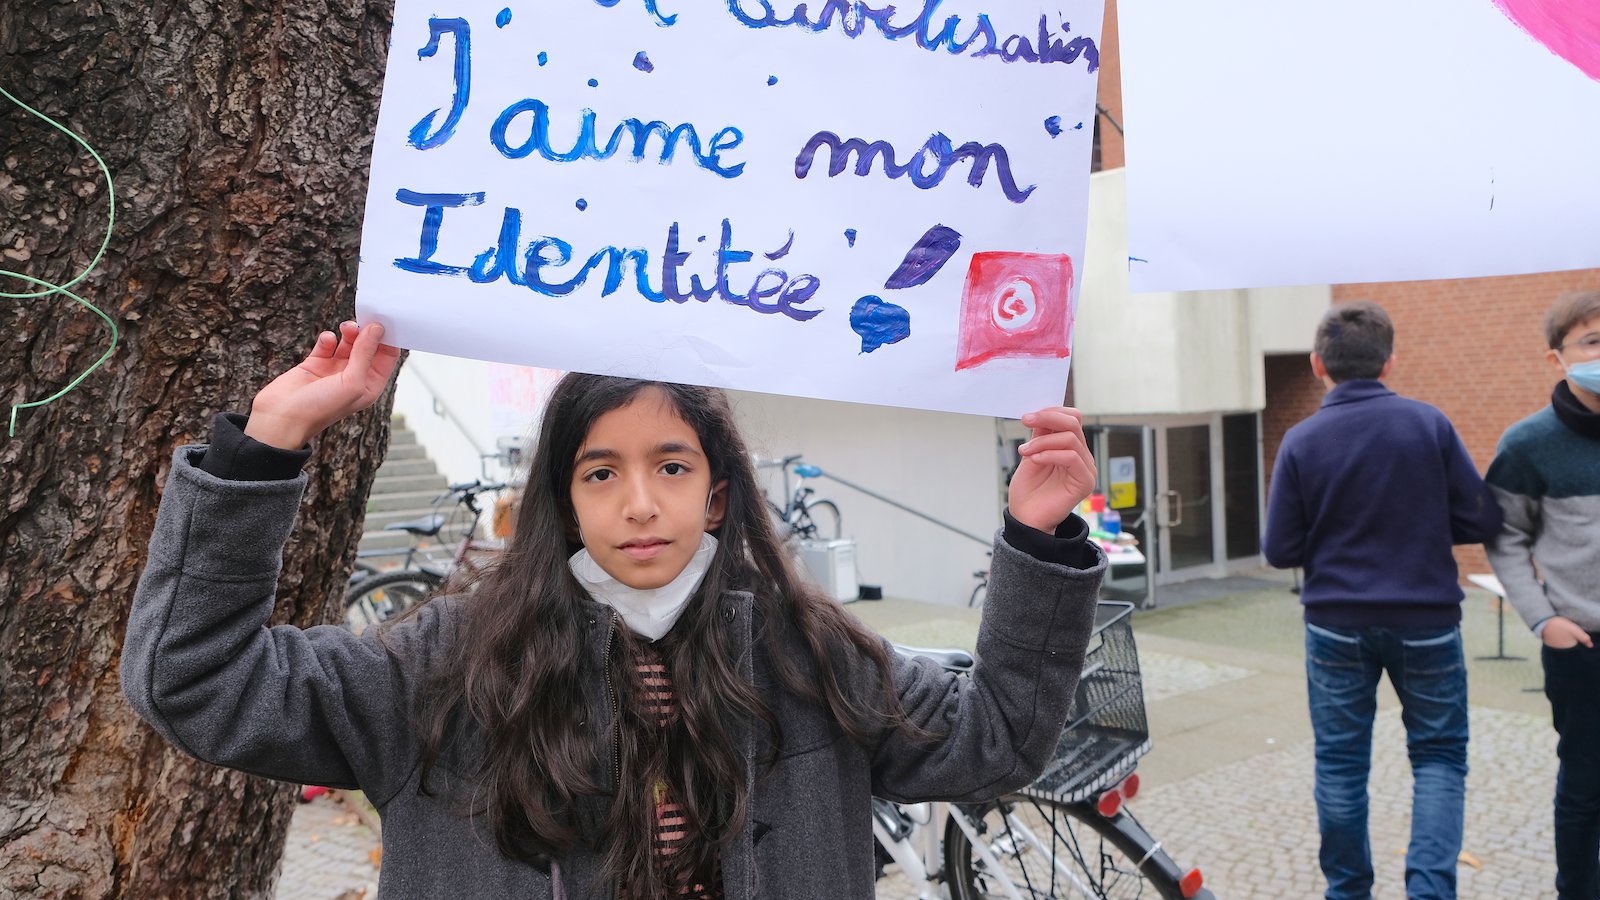 Civilisation
J'aime mon
Identitée !